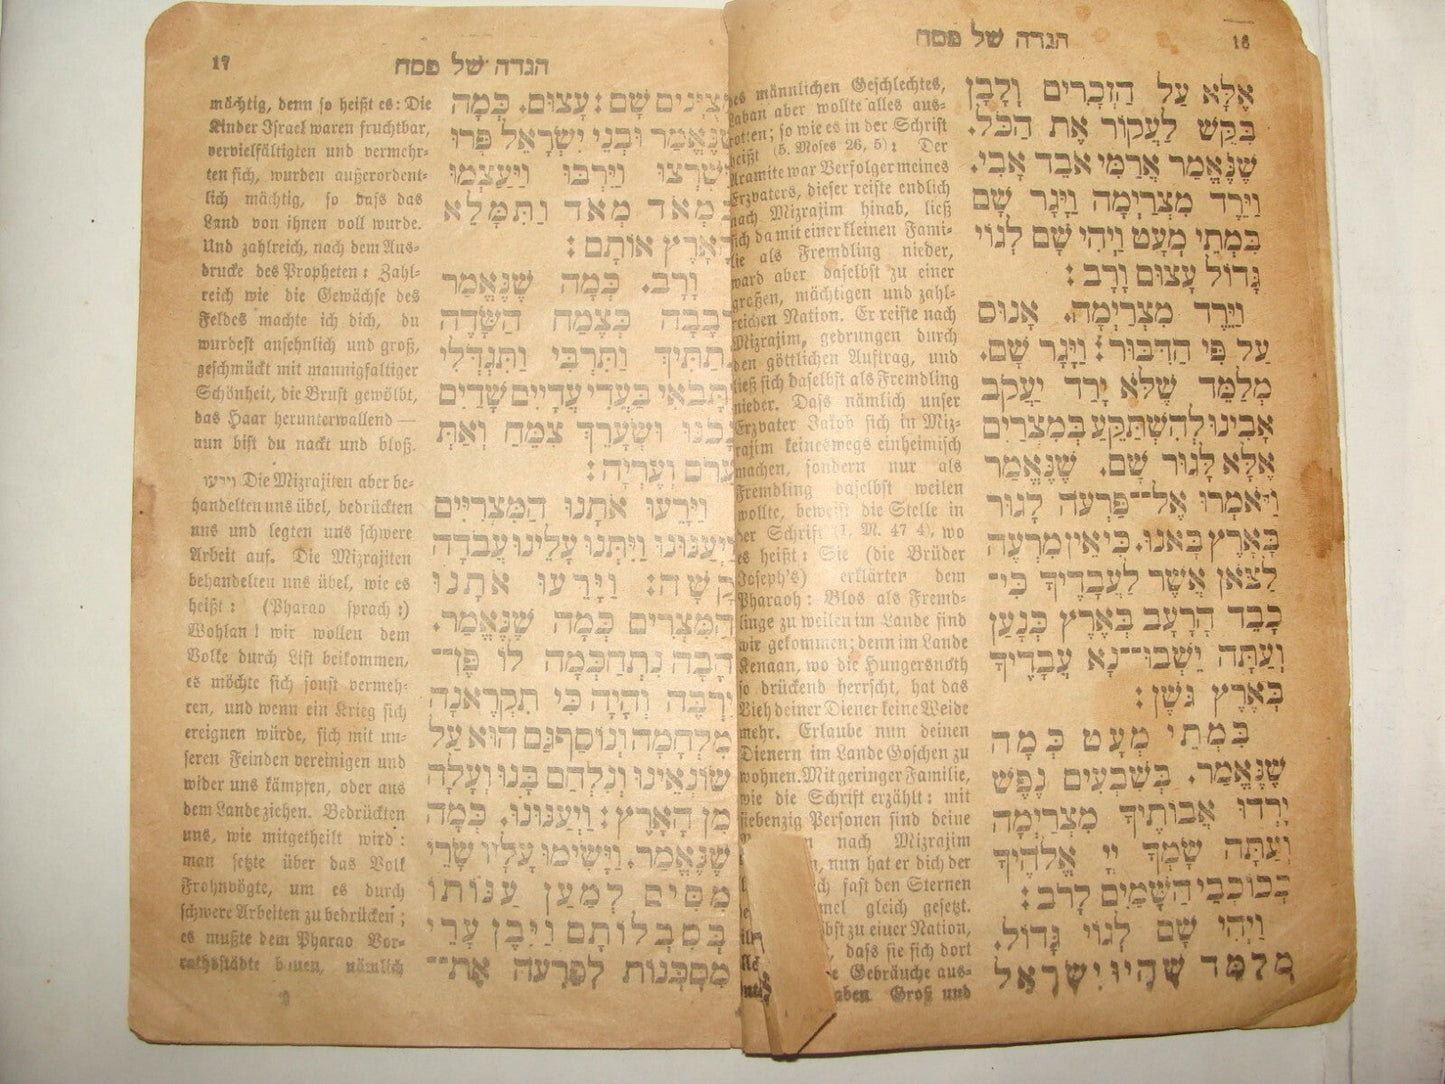 16
הגדה של פסח
אֶלָּא עַל הַזְּכָרִים וְלָבָן
בִּקֵּשׁ לַעֲקוֹר אֶת הַכֹּל.
שֶׁנֶּאֱמַר אֲרַמִּי אֹבֵד אָבִי.
וַיֵּרֶד מִצְרַיְמָה וַיָּגָר שָׁם
בִּמְתֵי מְעָט וַיְהִי שָׁם לְגוֹי
גָּדוֹל עָצוּם וָרָב:
וַיֵּרֶד מִצְרַיְמָה. אָנוּס
עַל פִּי הַדִּבּוּר: וַיָּגָר שָׁם.
מְלַמֵּד שֶׁלֹּא יָרַד יַעֲקֹב
אָבִינוּ לְהִשְׁתַּקֵּעַ בְּמִצְרַיִם
אֶלָּא לָגוּר שָׁם. שֶׁנֶּאֱמַר
וַיֹּאמְרוּ אֶל־פַּרְעֹה לָגוּר
בָּאָרֶץ בָּאנוּ. כִּי אֵין מִרְעֶה
לַצֹּאן אֲשֶׁר לַעֲבָדֶיךָ כִּי־
כָבֵד הָרָעָב בְּאֶרֶץ כְּנָעַן
וְעַתָּה יֵשְׁבוּ־נָא עֲבָדֶיךָ
בְּאֶרֶץ גֹּשֶׁן:
בִּמְתֵי מְעָט כְּמָה
שֶׁנֶּאֱמַר. בְּשִׁבְעִים נֶפֶשׁ
יָרְדוּ אֲבוֹתֶיךָ מִצְרַיְמָה
וְעַתָּה שָׂמְךָ יְיָ אֱלֹהֶיךָ
כְּכוֹכְבֵי הַשָּׁמַיִם לָרֹב:
וַיְהִי שָׁם לְגוֹי גָּדוֹל.
מְלַמֵּד שֶׁהָיוּ יִשְׂרָאֵל
männlichen Geschlechtes,
aber wollte alles aus-
so wie es in der Schrift
heißt (5. Moses 26, 5): Der
Aramite war Verfolger meines
Erzvaters, dieser reiste endlich
nach Mizrajim hinab, ließ
sich da mit einer kleinen Fami-
lie als Fremdling nieder,
ward aber daselbst zu einer
großen, mächtigen und zahl-
reichen Nation. Er reiste nach
Mizrajim, gedrungen durch
den göttlichen Auftrag, und
ließ sich daselbst als Fremdling
nieder. Dass nämlich unser
Erzvater Jakob sich in Miz-
rajim keineswegs einheimisch
machen, sondern nur als
Fremdling daselbst weilen
wollte, beweist die Stelle in
der Schrift (1. M. 47 4), wo
es heißt: Sie (die Brüder
Joseph's) erklärten dem
Pharaoh: Blos als Fremd-
linge zu weilen im Lande sind
wir gekommen; denn im Lande
Kenaan, wo die Hungersnoth
so drückend herrscht, hat das
Vieh deiner Diener keine Weide
mehr. Erlaube nun deinen
Dienern im Lande Goschen zu
wohnen. Mit geringer Familie,
wie die Schrift erzählt: mit
siebenzig Personen sind deine
nach Mizrajim
nun hat er dich der
fast den Sternen
gleich gesetzt.
zu einer Nation,
dass sie sich dort
Gebräuche aus-
Groß und
17
הגדה של פסח
מְצֻיָּנִים שָׁם: עָצוּם. כְּמָה
שֶׁנֶּאֱמַר וּבְנֵי יִשְׂרָאֵל פָּרוּ
וַיִּשְׁרְצוּ וַיִּרְבּוּ וַיַּעַצְמוּ
בִּמְאֹד מְאֹד וַתִּמָּלֵא
הָאָרֶץ אוֹתָם:
וָרָב. כְּמָה שֶׁנֶּאֱמַר
רְבָבָה כְּצֶמַח הַשָּׂדֶה
נְתַתִּיךְ וַתִּרְבִּי וַתִּגְדְּלִי
וַתָּבֹאִי בַּעֲדִי עֲדָיִים שָׁדַיִם
נָכֹנוּ וּשְׂעָרֵךְ צִמֵּחַ וְאַתְּ
עֵרֹם וְעֶרְיָה:
וַיָּרֵעוּ אֹתָנוּ הַמִּצְרִיִּים
וַיְעַנּוּנוּ וַיִּתְּנוּ עָלֵינוּ עֲבֹדָה
קָשָׁה: וַיָּרֵעוּ אֹתָנוּ
הַמִּצְרִים כְּמָה שֶׁנֶּאֱמַר.
הָבָה נִתְחַכְּמָה לוֹ פֶּן־
יִרְבֶּה וְהָיָה כִּי תִקְרֶאנָה
מִלְחָמָה וְנוֹסַף גַּם הוּא עַל
שׂוֹנְאֵינוּ וְנִלְחַם בָּנוּ וְעָלָה
מִן הָאָרֶץ: וַיְעַנּוּנוּ. כְּמָה
שֶׁנֶּאֱמַר. וַיָּשִׂימוּ עָלָיו שָׂרֵי
מִסִּים לְמַעַן עַנּוֹתוֹ
בְּסִבְלוֹתָם וַיִּבֶן עָרֵי
מִסְכְּנוֹת לְפַרְעֹה אֶת־
mächtig, denn so heißt es: Die
Kinder Israel waren fruchtbar,
vervielfältigten und vermehr-
ten sich, wurden außerordent-
lich mächtig, so dass das
Land von ihnen voll wurde.
Und zahlreich, nach dem Aus-
drucke des Propheten: Zahl-
reich wie die Gewächse des
Feldes machte ich dich, du
wurdest ansehnlich und groß,
geschmückt mit mannigfaltiger
Schönheit, die Brust gewölbt,
das Haar herunterwallend —
nun bist du nackt und bloß.
וירעו Die Mizrajiten aber be-
handelten uns übel, bedrückten
uns und legten uns schwere
Arbeit auf. Die Mizrajiten
behandelten uns übel, wie es
heißt: (Pharao sprach:)
Wohlan! wir wollen dem
Volke durch List beikommen,
es möchte sich sonst vermeh-
ren, und wenn ein Krieg sich
ereignen würde, sich mit un-
seren Feinden vereinigen und
wider uns kämpfen, oder aus
dem Lande ziehen. Bedrückten
uns, wie mitgetheilt wird:
man setzte über das Volk
Frohnvögte, um es durch
schwere Arbeiten zu bedrücken;
es mußte dem Pharao Vor-
rathsstädte bauen, nämlich